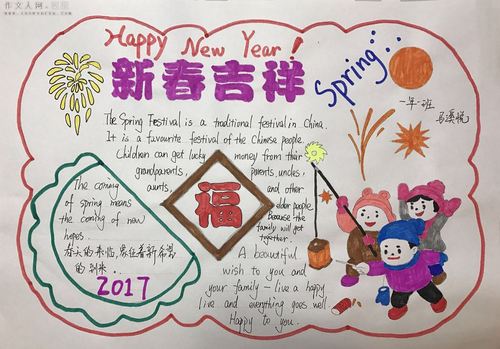 作文人网
Happy New Year!
新春吉祥
Spring:
一年一班
马溪悦
The Spring Festival is a traditional festival in China.
It is a favourite festival of the Chinese people.
Children can get lucky money from their
grandparents, parents, uncles,
aunts, and other
elder people.
Because the
family will get
together.
福
The coming
of spring means
the coming of new
hopes.
春天的来临,意味着新希望
的到来.
2017
A beautiful
wish to you and
your family - live a happy
live and everything goes well
Happy to you.